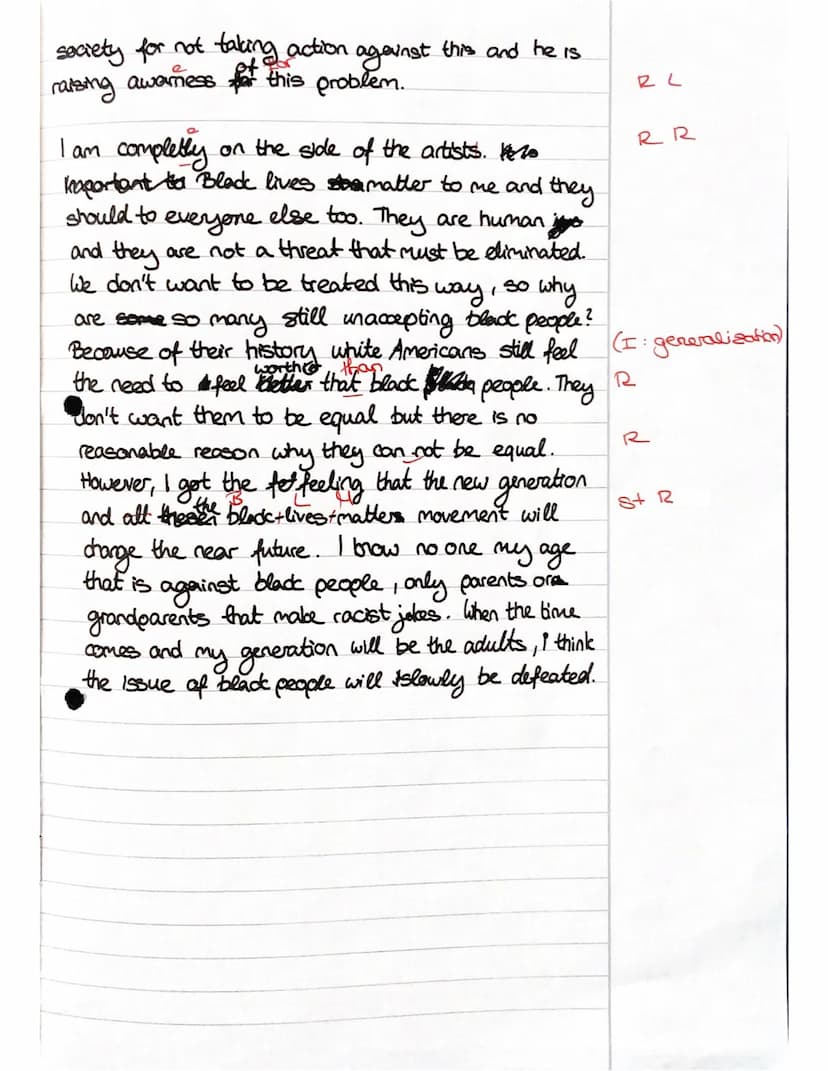 society for not taking action against this and he is
raising awarness of for this problem.
e for
R L
I am completly on the side of the artists.
e
R R
important to Black lives matter to me and they
should to everyone else too. They are human
and they are not a threat that must be eliminated.
We don't want to be treated this way, so why
are some so many still unaccepting black people?
Because of their history white Americans still feel
(I: generalisation)
the need to feel better that black people. They
than
R
don't want them to be equal but there is no
reasonable reason why they can not be equal.
R
However, I get the feeling that the new generation
and all the black lives matter movement will
B L M
St R
change the near future. I know no one my age
that is against black people, only parents or
grandparents that make racist jokes. When the time
comes and my generation will be the adults, I think
the issue of black people will slowly be defeated.